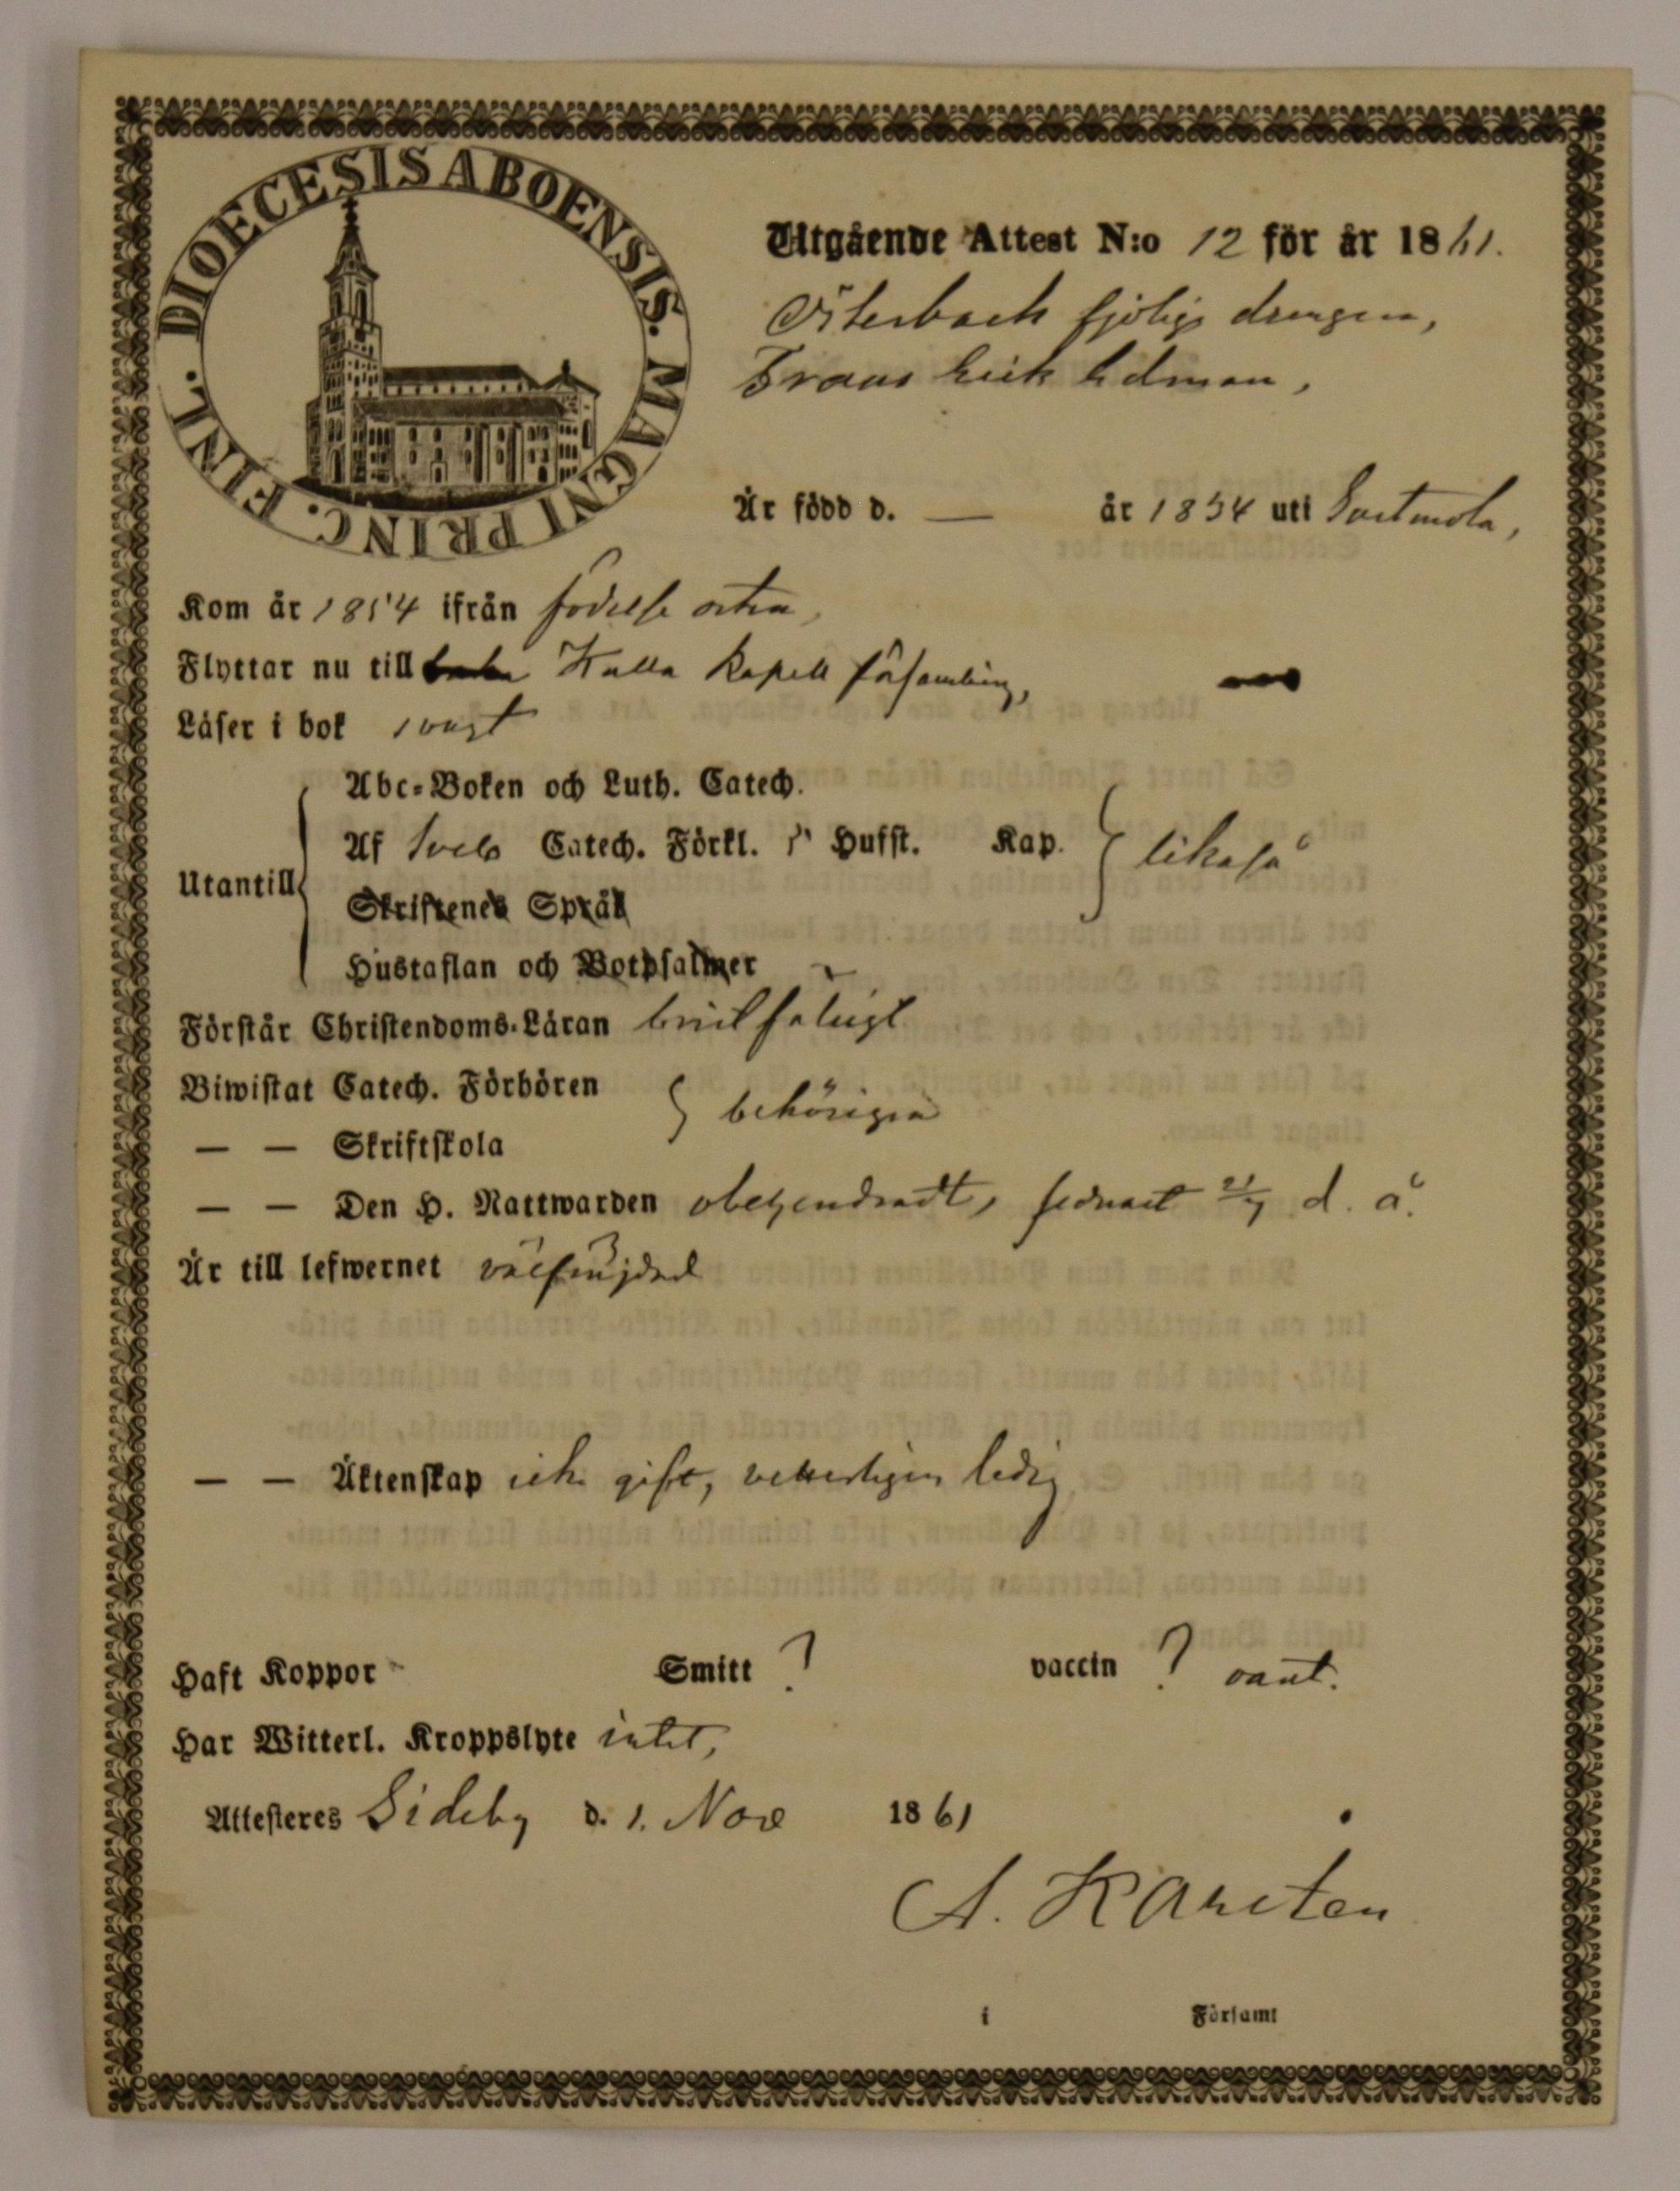 DIOECESIS ABOENSIS. MAGNI PRINC. FINL.
Utgående Attest N:o 12 för år 1861.
Österback drengen,
Frans Erik Edman,
Är född d. — år 1834 uti Sastmola,
Kom år 1854 ifrån födelse orten,
Flyttar nu till Kalla Kapell församling,
Läser i bok svagt
Abc-Boken och Luth. Catech.
Af Sveb Catech. Förkl. 5 Hufst. Kap.
likaså
Utantill
Skriftenes Språk
Hustaflan och Botpsalmer
Förstår Christendoms-Läran enfaldigt
Biwistat Catech. Förhören
behörigen
— — Skriftskola
— — Den H. Nattwarden obehindradt, sednast d. å.
Är till lefwernet välfrejdad
— — Äktenskap icke gift, vetterligen ledig
Haft Koppor Smitt ? vaccin ? vant.
Har Witterl. Kroppslyte intet,
Attesteres Sideby d. 1. Nov 1861
A. Karsten
i Församl